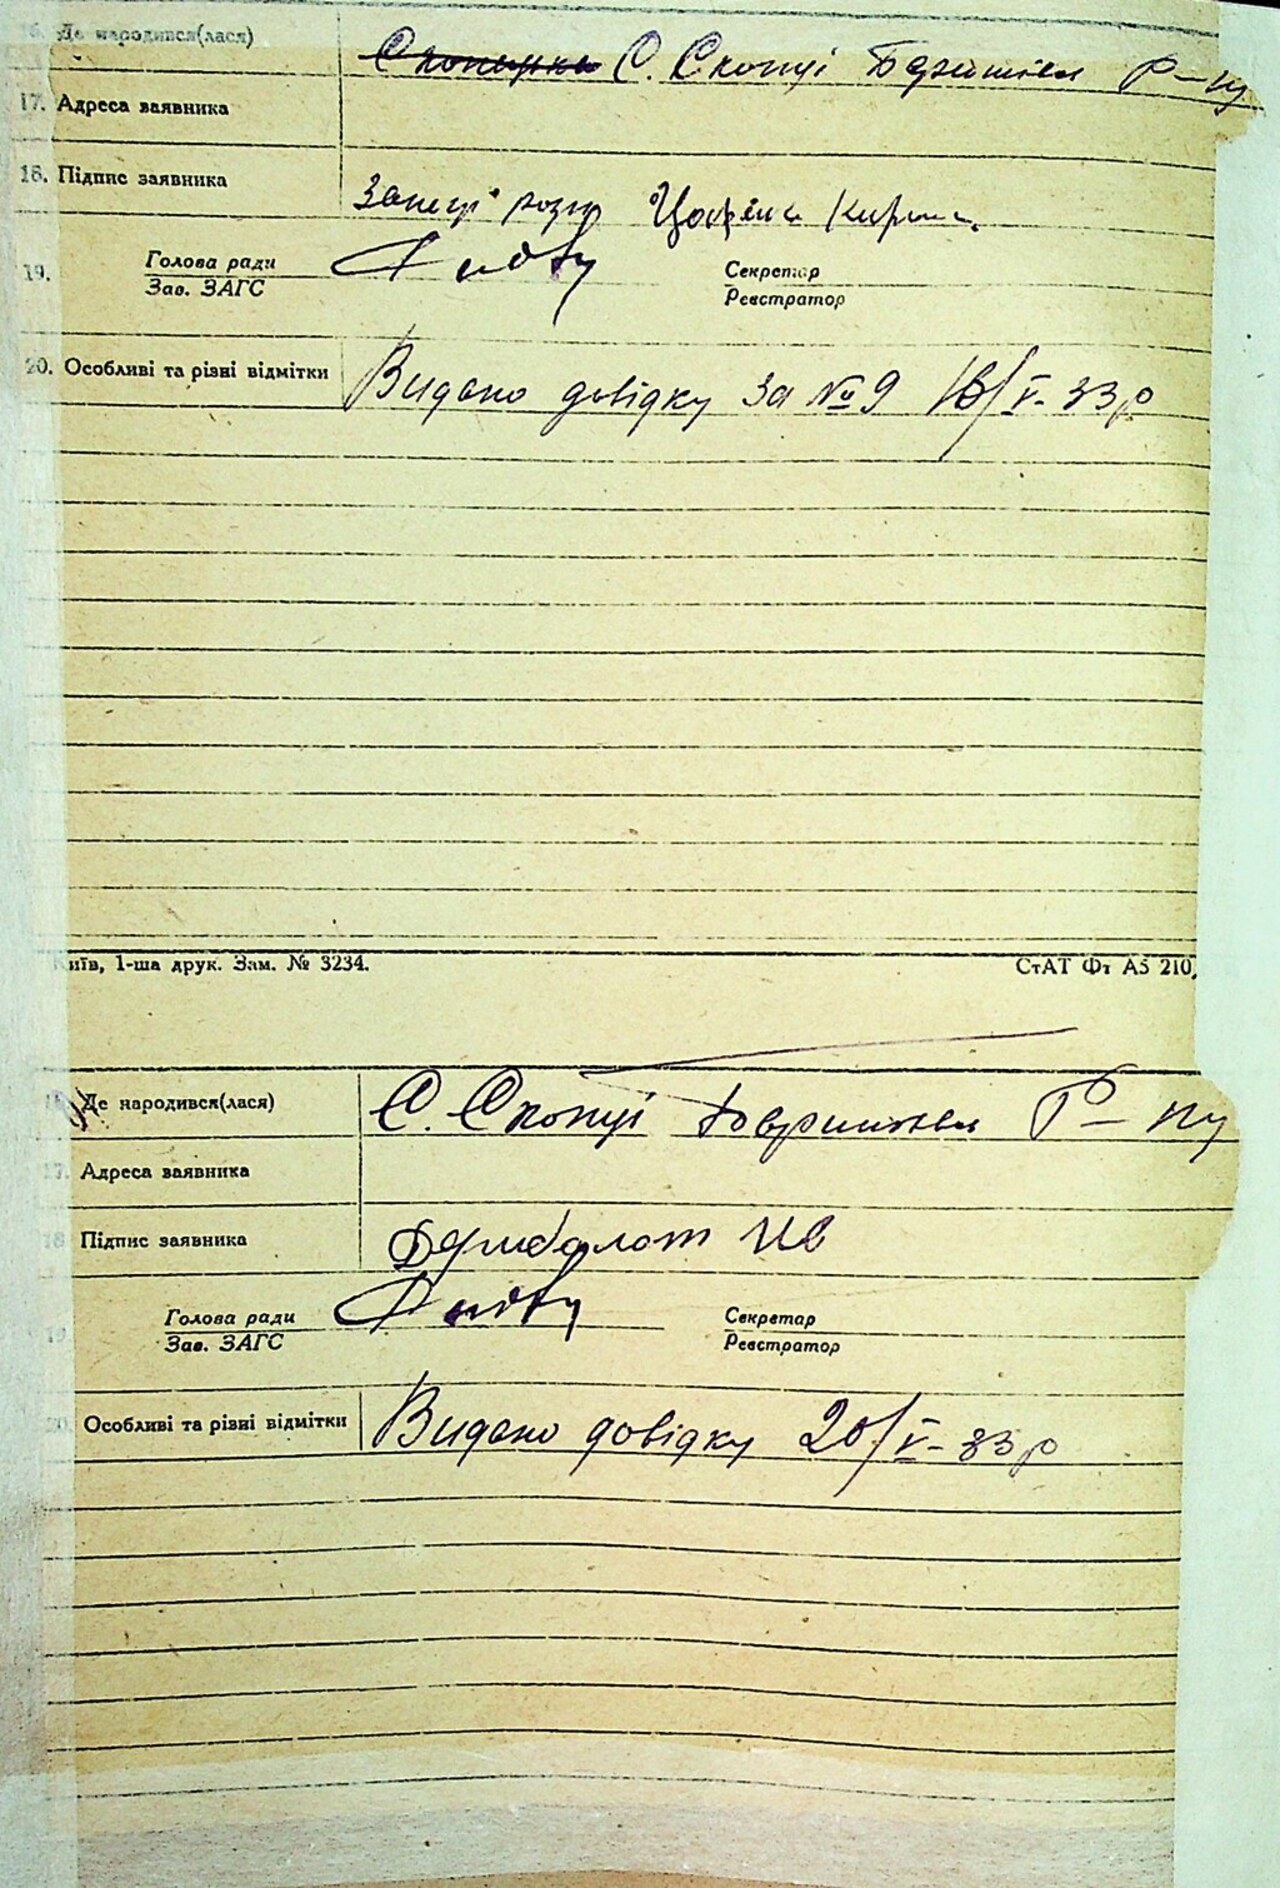 16. Де народився(лася) С. Скопці Р-ну
17. Адреса заявника
18. Підпис заявника
19. Голова ради Секретар
Зав. ЗАГС Реєстратор
20. Особливі та різні відмітки Видано довідку за №9 18/V-33р
Київ, 1-ша друк. Зам. № 3234. СтАТ Фт А5 210.
16. Де народився(лася) С. Скопці Р-ну
17. Адреса заявника
18 Підпис заявника
19. Голова ради Секретар
Зав. ЗАГС Реєстратор
20. Особливі та різні відмітки Видано довідку 20/V-33р